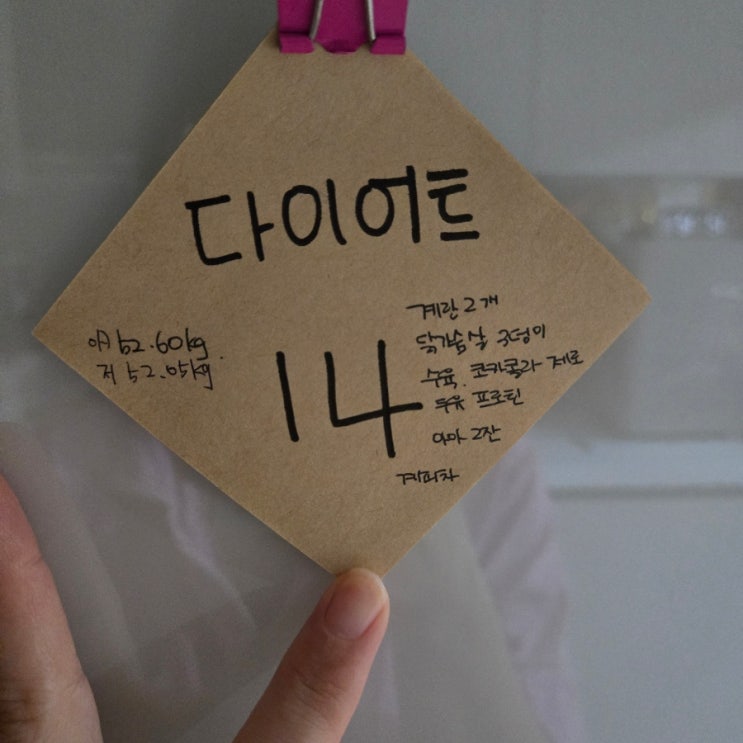 다이어트
아 52.60kg
저 52.05kg
14
계란 2개
닭가슴살 3덩이
수육. 코카콜라 제로
두유 프로틴
아아 2잔
계피차